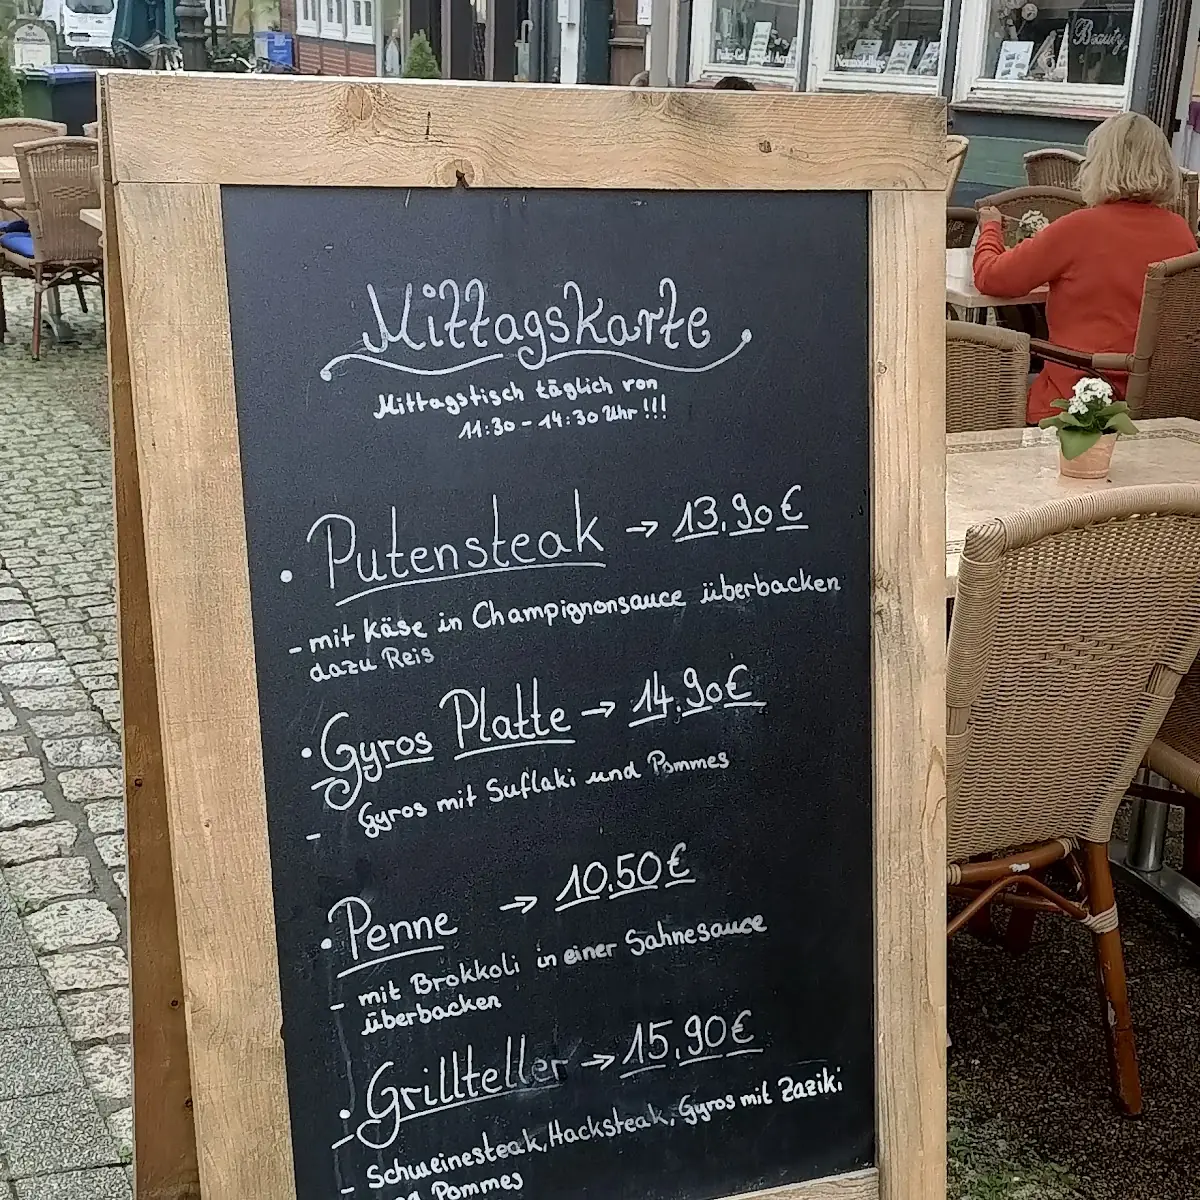 Mittagskarte
Mittagstisch täglich von
11:30 - 14:30 Uhr !!!
• Putensteak → 13,90€
- mit Käse in Champignonsauce überbacken
dazu Reis
• Gyros Platte → 14,90€
- Gyros mit Suflaki und Pommes
• Penne → 10,50€
- mit Brokkoli in einer Sahnesauce
überbacken
• Grillteller → 15,90€
- Schweinesteak, Hacksteak, Gyros mit Zaziki
Pommes
Beauty